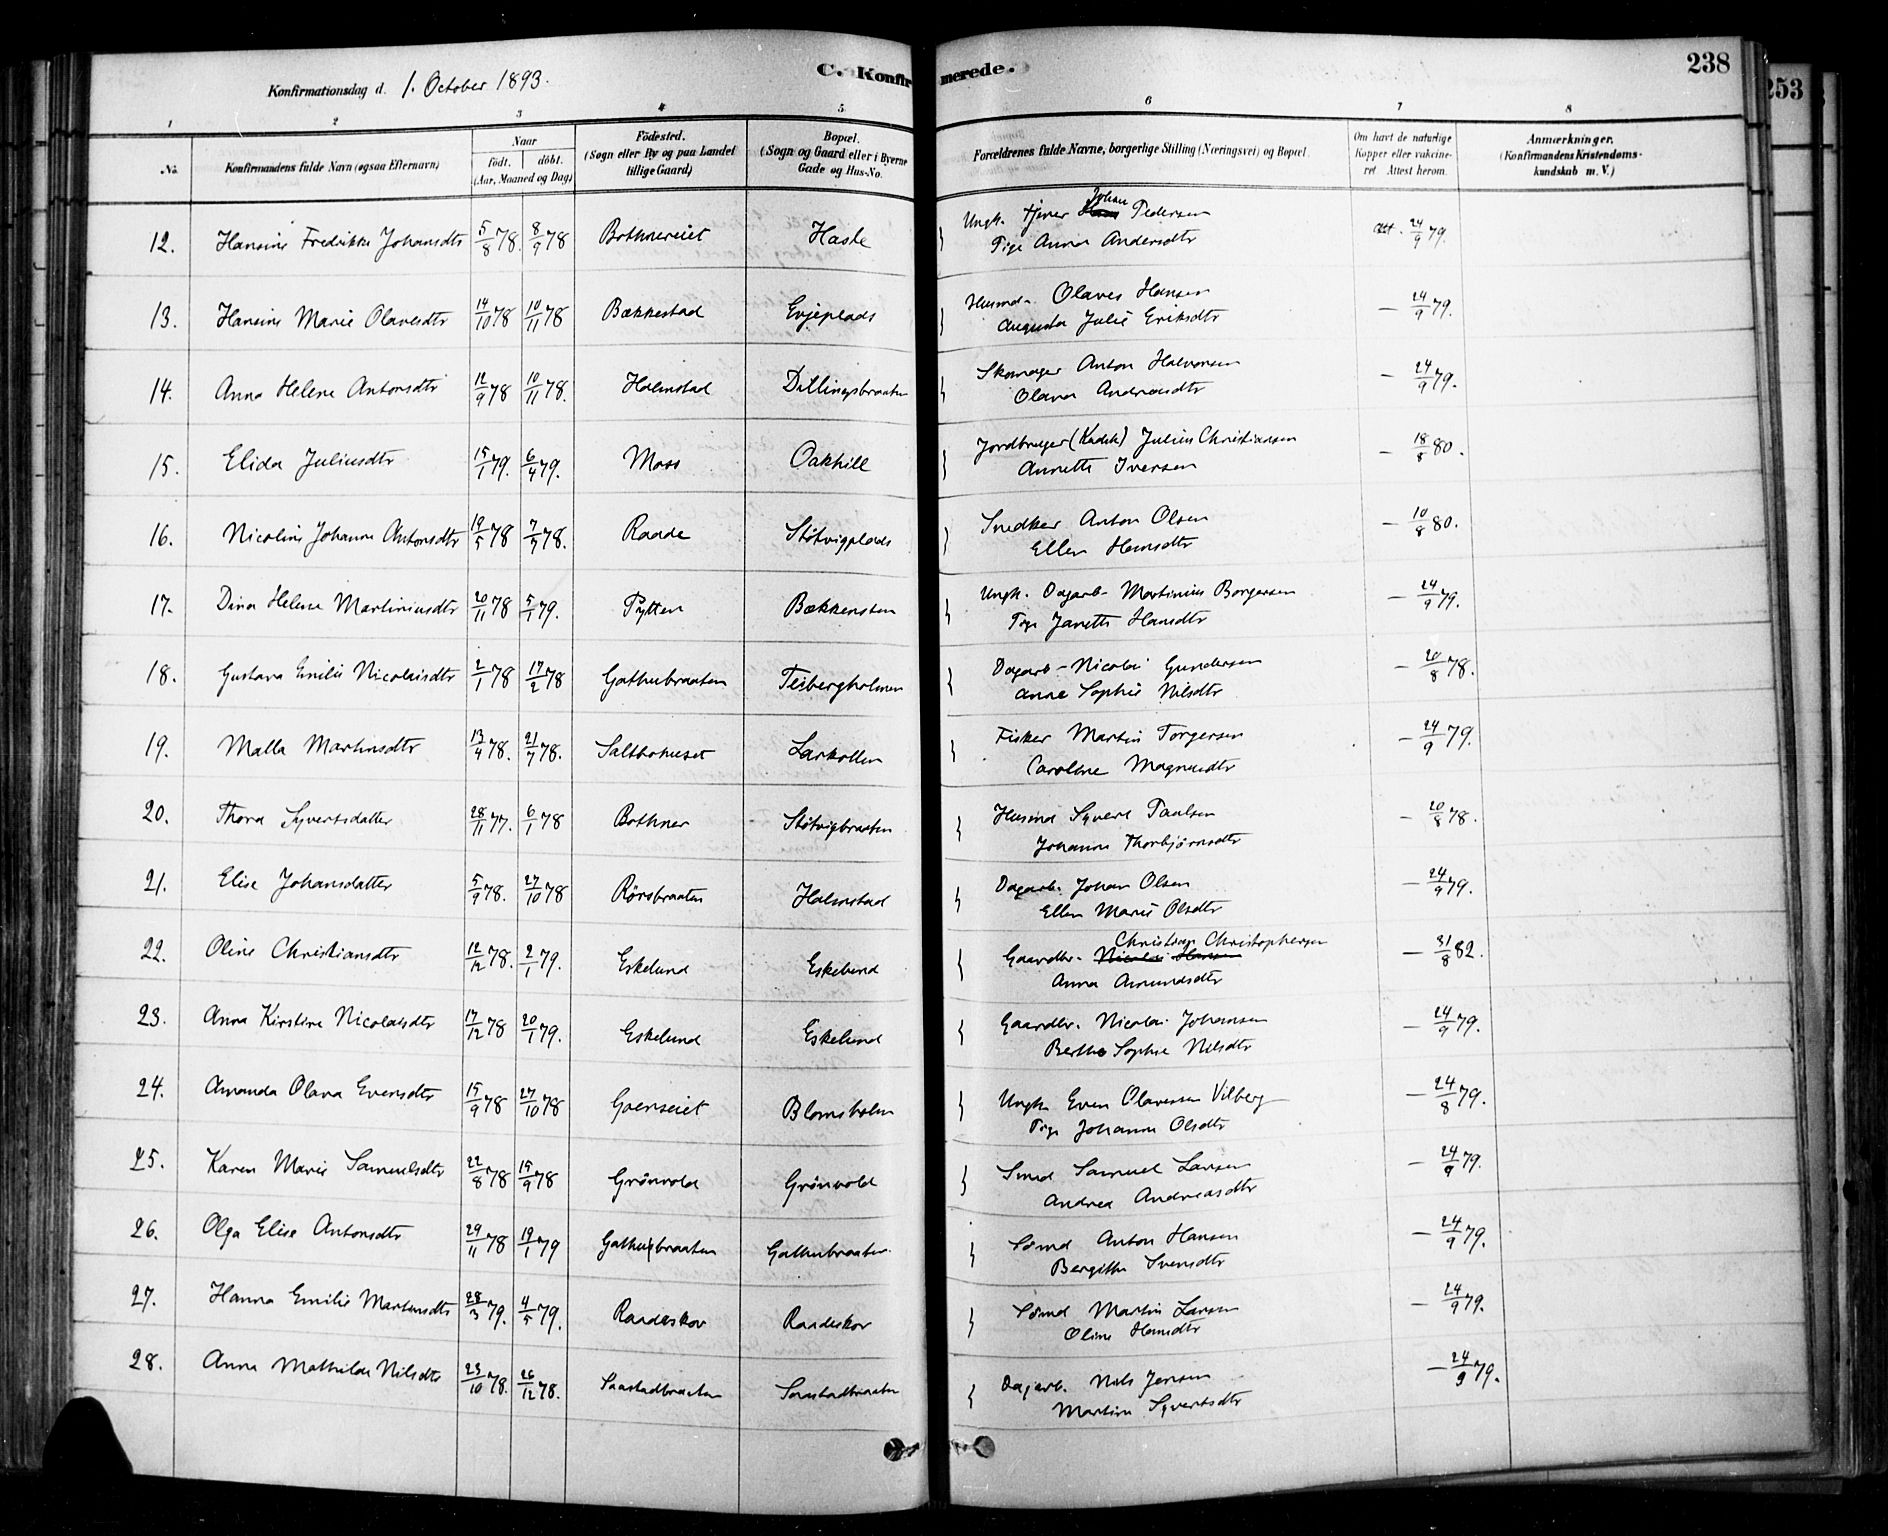 Konfirmationsdag d. 1. October 1893.
C. Konfirmerede.
238
253
1 2 3 4 5 6 7 8
No. Konfirmandens fulde Navn (ogsaa Efternavn) Naar födt. döbt. (Aar, Maaned og Dag) Födested. (Sogn eller By og paa Landet tillige Gaard) Bopæl. (Sogn og Gaard eller i Byerne Gade og Hus-No. Forældrenes fulde Navne, borgerlige Stilling (Næringsvei) og Bopæl. Om havt de naturlige Kopper eller vakcineret Attest herom. Anmerkninger. (Konfirmandens Kristendomskundskab m. V.)
12. Hansine Fredrikke Johansdtr 5/8 78. 8/9 78 Bothnereiet Hasle Ungk. tjener Johan Pedersen Att. 24/9 79.
Pige Anna Andersdtr
13. Hansine Marie Olavesdtr 14/10 78 10/11 78 Bækkestad Evjeplads Husmd. Olaves Hansen — 24/9 79.
Augusta Julie Eriksdtr
14. Anna Helene Antonsdtr 12/9 78 10/11 78. Halmstad Dillingsbraaten Skomager Anton Halvorsen — 24/9 79.
Olava Andreasdtr
15. Elida Juliusdtr 15/1 79. 6/4 79. Moss Oakhill Jordbruger (Kadek) Julius Christiansen — 18/8 80.
Annette Iversen
16. Nicoline Johanne Antonsdtr 19/5 78 7/7 78. Raade Støtvigplads Snedker Anton Olsen — 10/8 80.
Ellen Hansdtr
17. Dina Helene Martiniusdtr 20/11 78 5/1 79. Pytten Bækkensten Ungk. Dagarb. Martinius Borgersen — 24/9 79.
Pige Janette Hansdtr
18. Gustava Emilie Nicolaisdtr 2/1 78 17/2 78 Gathubraaten Teibergholmen Dagarb. Nicolai Gundersen — 20/8 78.
Anne Sophie Nilsdtr
19. Malla Martinsdtr 13/4 78. 21/7 78. Saltbohuset Larkollen Fisker Martin Torgersen — 24/9 79.
Caroline Magnusdtr
20. Thora Syvertsdatter 28/11 77. 6/1 78 Bothner Støtvigbraaten Husmd Syvert Paulsen — 20/8 78.
Johanne Thorbjørnsdtr
21. Elise Johansdatter 5/9 78. 27/10 78 Rørsbraaten Halmstad Dagarb. Johan Olsen — 24/9 79.
Ellen Marie Olsdtr
22. Oline Christiansdtr 12/12 78. 2/1 79. Eskelund Eskelund Gaardbr. Christian Christophersen — 31/8 82.
Anna Amundsdtr
23. Anna Kirstine Nicolaisdtr 17/12 78 20/1 79. Eskelund Eskelund Gaardbr. Nicolai Johansen — 24/9 79.
Berthe Sophie Nilsdtr
24. Amanda Olava Evensdtr 15/9 78 27/10 78 Goenseiet Blomsholm Ungk. Even Olavesen Vilberg — 24/8 79.
Pige Johanne Olsdtr
25. Karen Marie Samuelsdtr 22/8 78 15/9 78 Grønvold Grønvold Smed Samuel Larsen — 24/9 79.
Andrea Andreasdtr
26. Olga Elise Antonsdtr 29/11 78 19/1 79 Gathubraaten Gathubraaten Sømd Anton Hansen — 24/9 79.
Bergithe Svensdtr
27. Hanna Emilie Martinsdtr 28/3 79. 4/5 79. Raadeskov Raadeskov Sømd Martin Larsen — 24/9 79.
Oline Hansdtr
28. Anna Mathilde Nilsdtr 23/10 78. 26/12 78. Saastadbraaten Saastadbraaten Dagarb. Nils Jensen — 24/9 79.
Martine Syvertsdtr